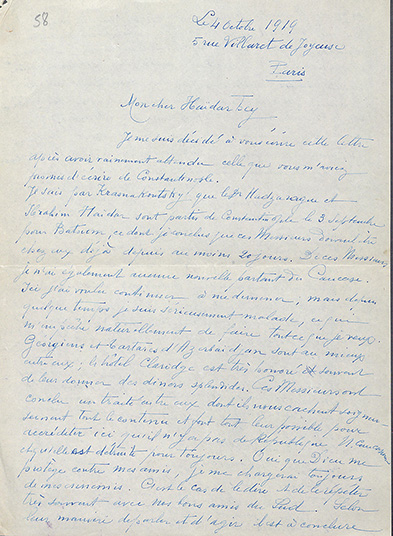 58
Le 4 Octobre 1919
5 rue Villaret de Joyeuse
Paris
Mon cher Haidar Bey
Je me suis décidé à vous écrire cette lettre
après avoir vainement attendu celle que vous m'aviez
promis d'écrire de Constantinople.
Je sais par que le Dr Hadzarague et
Ibrahim Haidar sont partis de Constantinople le 3 septembre
pour Batoum, ce dont je conclus que ces Messieurs devraient être
chez eux déjà depuis au moins 20 jours. De ces Messieurs
je n'ai également aucune nouvelle partant du Caucase.
Ici j'ai voulu continuer à me démener, mais depuis
quelque temps je suis sérieusement malade, ce qui
m'empêche naturellement de faire tout ce que je veux.
Géorgiens et tartares d'Azerbaïdjan sont au mieux
entre eux; l'hôtel Claridge est très honoré souvent
de leur donner des dîners splendides. Ces Messieurs ont
conclu un traité entre eux dont ils nous cachent soigneu-
sement tout le contenu et font tout leur possible pour
accréditer ici qu'il n'y a pas de République N. Caucase
et qu'elle est détruite pour toujours. Oui que Dieu me
protège contre mes amis, je me chargerai toujours
de mes ennemis. C'est le cas de le dire et de le répéter
très souvent avec nos bons amis du Sud. Selon
leur manière de parler et d'agir il est à conclure